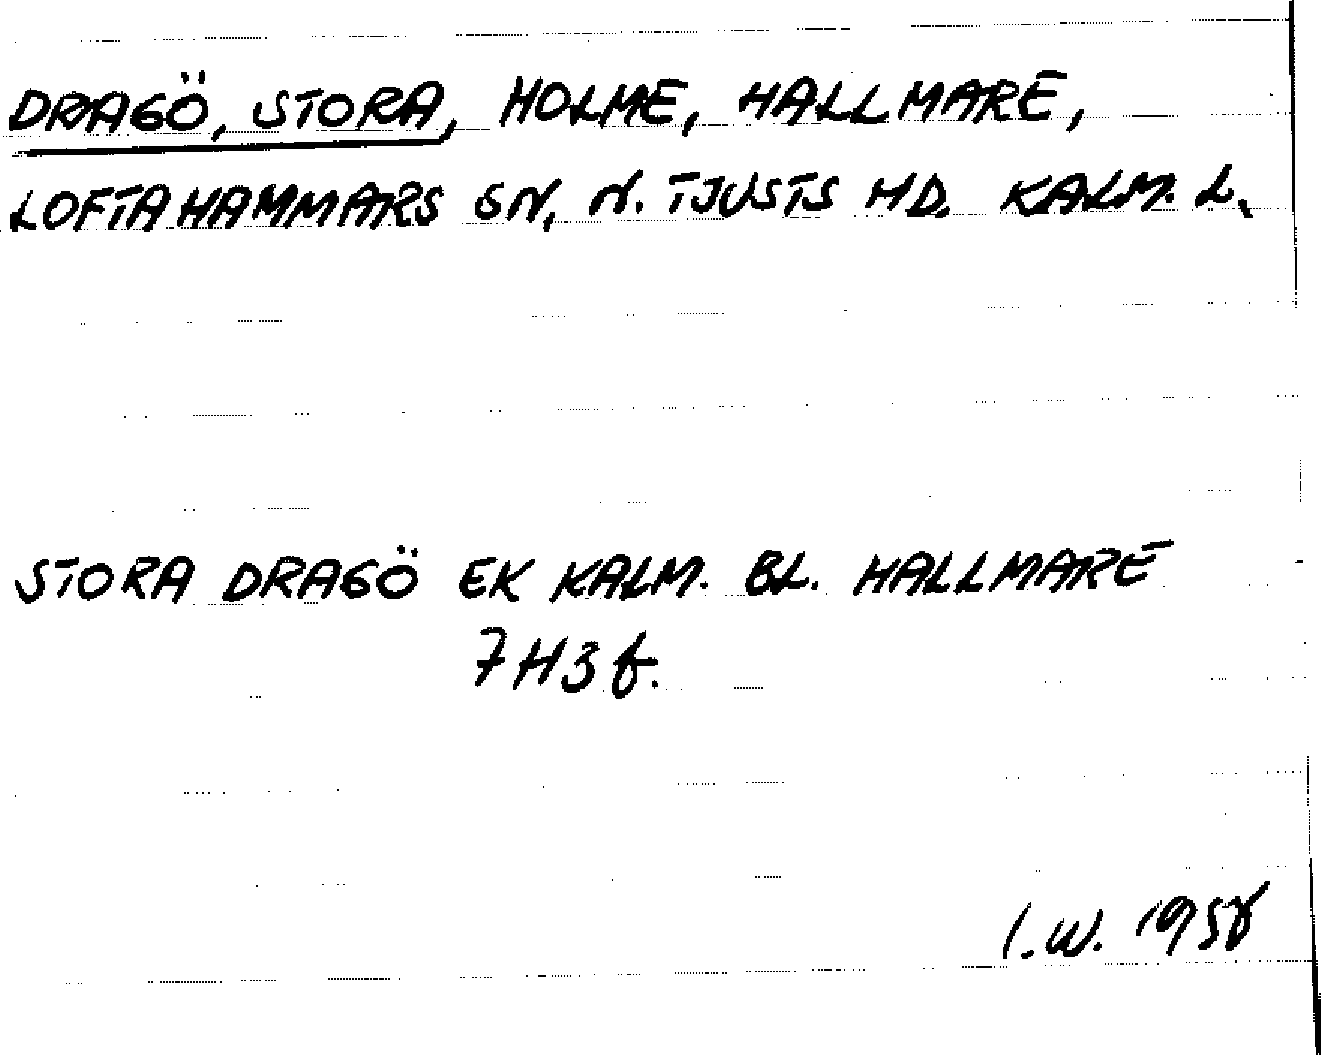 DRAGÖ, STORA, HOLME, HALLMARE,
LOFTAHAMMARS SN, N. TJUSTS HD. KALM. L.
STORA DRAGÖ EK KALM. BL. HALLMARE
7H3f.
I.W. 1958